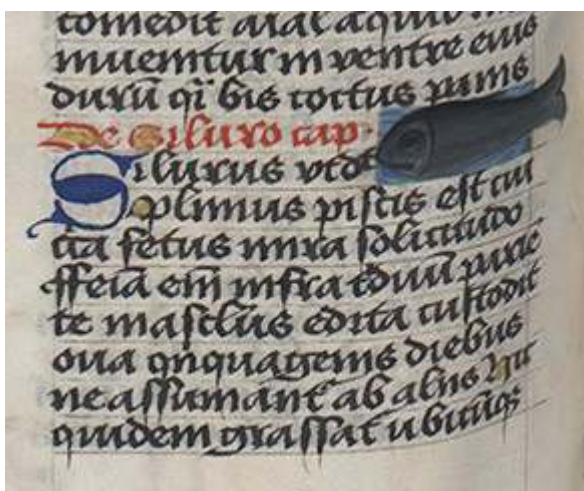 comedit aial aquo
inueniuntur in ventre eius
durū qi bis coctus panis
De Siluro cap
Silurus vt dt
plinius piscis est cui
cta fetus mira solicitudo
em infra
te masclus edita custodit
oua qnquagenis diebus
ne assumant̄ ab aliis
quidem grassat̄ ubicūqȝ